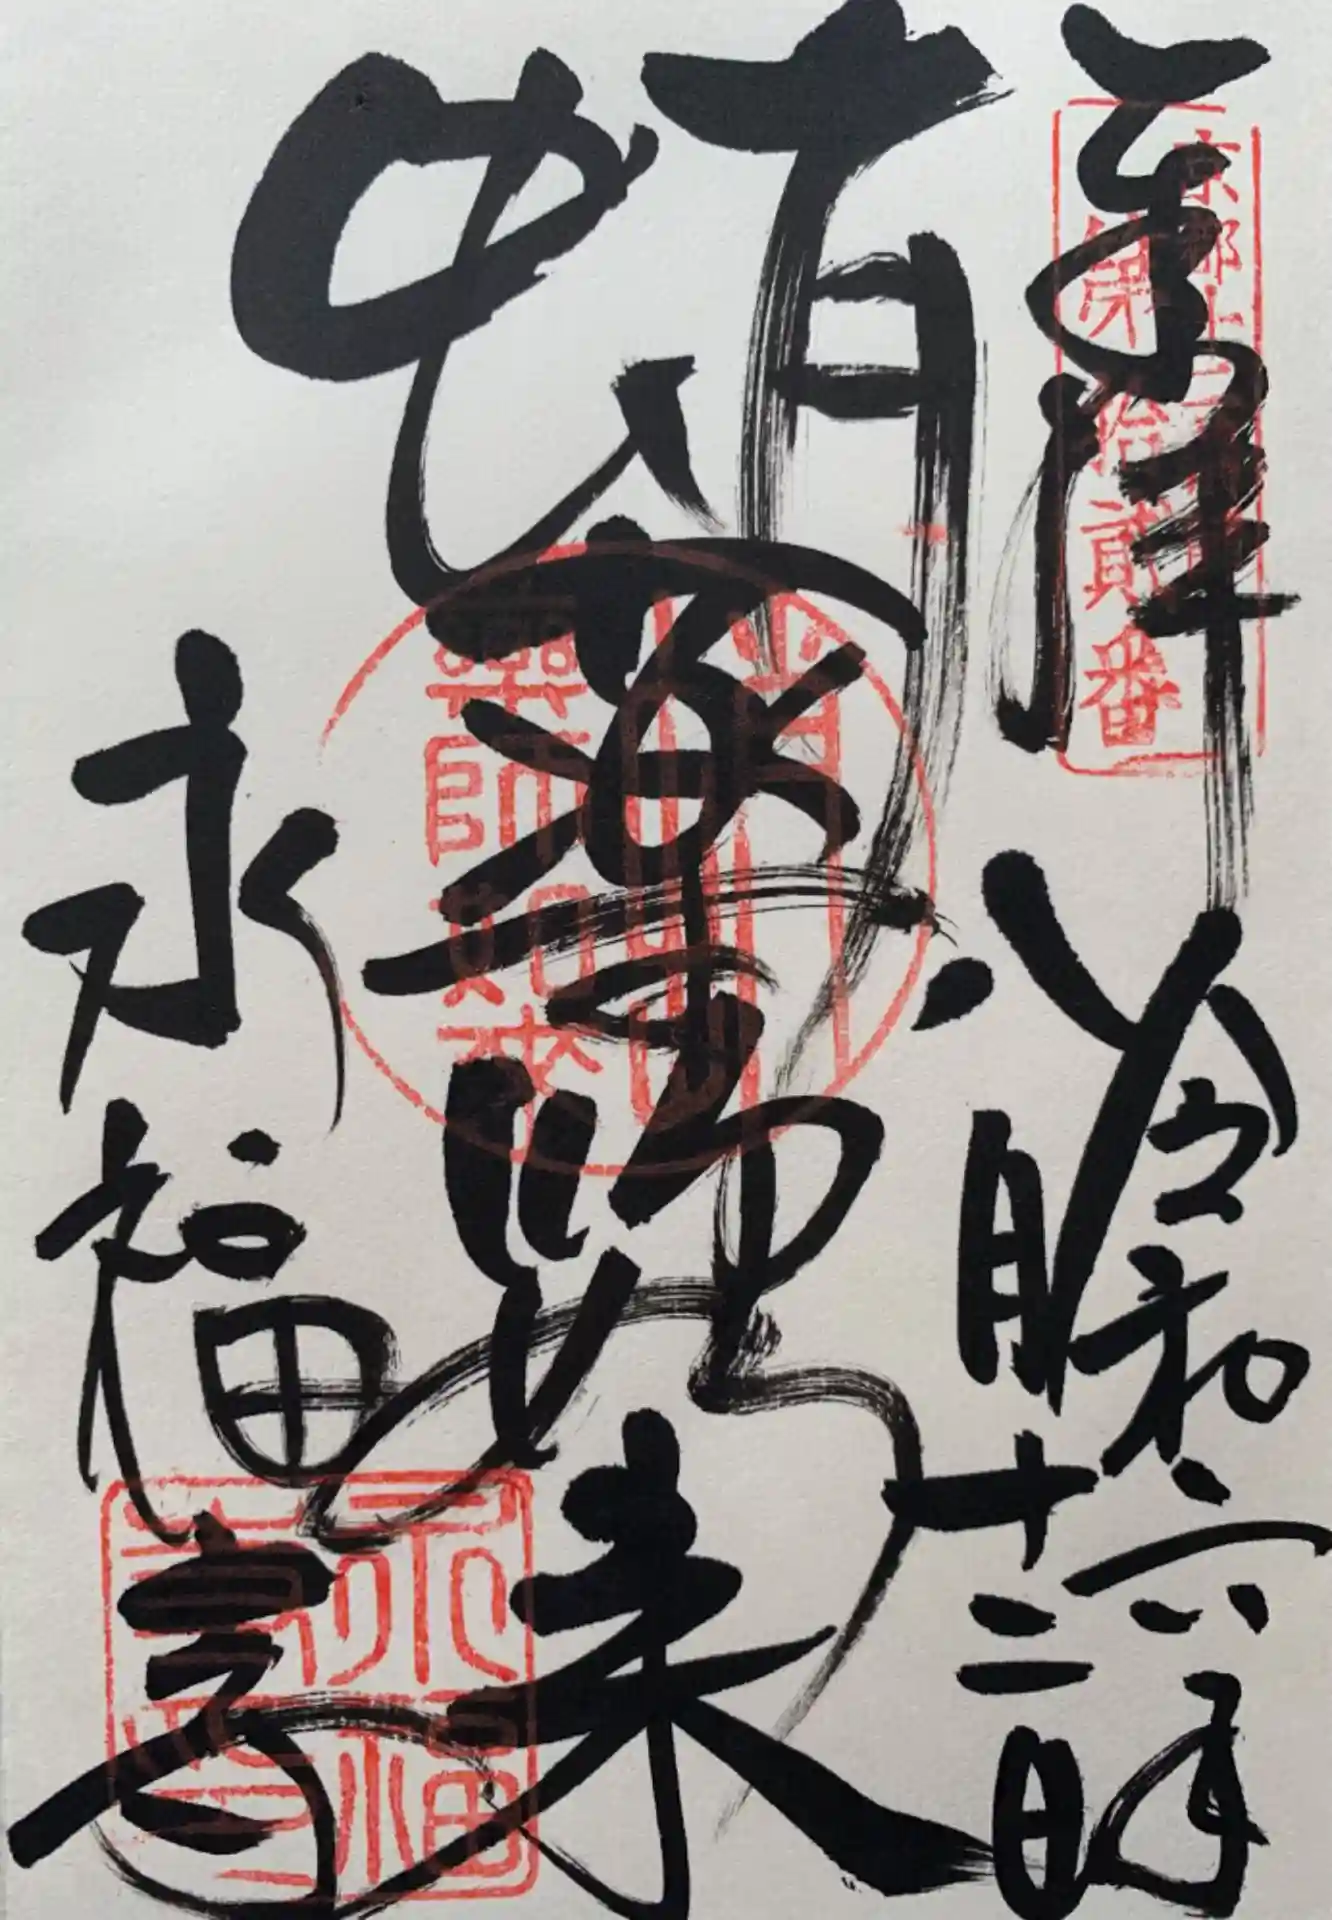 奉拝
京都十二薬師
第拾貳番
令和六年
八月十二日
蛸薬師如来
蛸
薬師如来
永福寺
永福